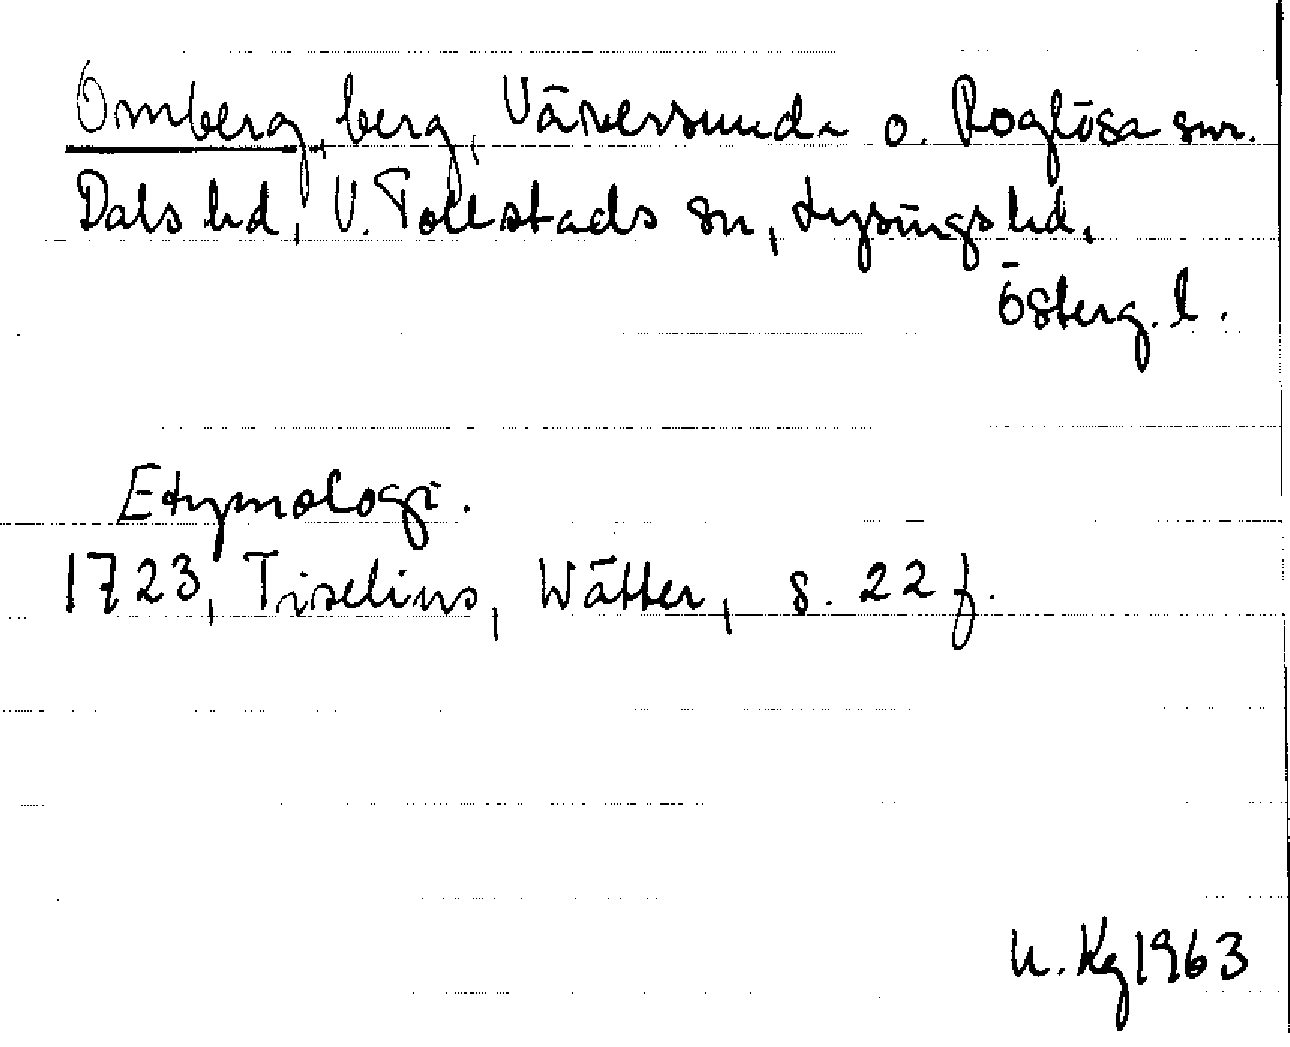 Omberg, berg, Väversunda o. Rogslösa snr.
Dals hd, V. Tollstads sn, Lysings hd,
Österg. l.
Etymologi.
1723, Tiselius, Wätter, s. 22 f.
U. Kg 1963